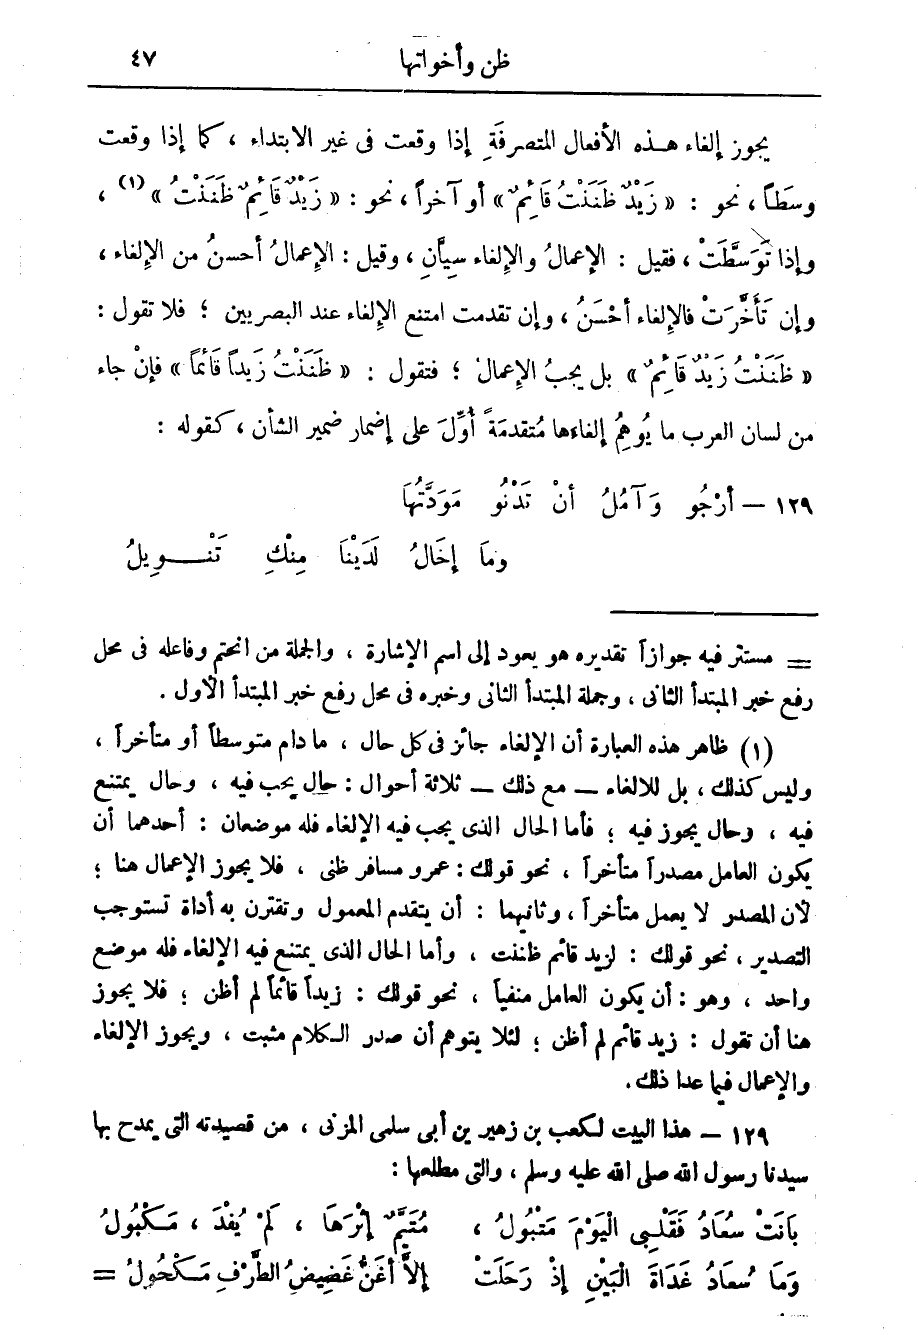 ظن وأخواتها ٤٧
يجوز إلغاء هـذه الأفعال المتصرفَةِ إذا وقعت فى غير الابتداء ، كما إذا وقعت
وسَطاً ، نحو : « زَيْدٌ ظَنَنْتُ قَائِمٌ » أو آخراً ، نحو : « زَيْدٌ قَائِمٌ ظَنَنْتُ »(١) ،
وإذا تَوَسَّطَتْ ، فقيل : الإعمالُ والإلغاء سِيَّانِ ، وقيل : الإعمالُ أحسنُ من الإلغاء ،
وإن تَأَخَّرَتْ فالإلغاء أحْسَنُ ، وإن تقدمت امتنع الإلغاء عند البصريين ؛ فلا تقول :
« ظَنَنْتُ زَيْدٌ قَائِمٌ » بل يجبُ الإعمالُ ؛ فتقول : « ظَنَنْتُ زَيداً قَائماً » فإنْ جاء
من لسان العرب ما يُوهِمُ إلغاءها مُتقدمَةً أُوِّلَ على إضمار ضمير الشأن ، كقوله :
١٢٩ — أرْجُو وَآمُلُ أنْ تَدْنُو مَوَدَّتُهَا
ومَا إخَالُ لَدَيْنَا مِنْكِ تَنْــوِيلُ
= مستتر فيه جوازاً تقديره هو يعود إلى اسم الإشارة ، والجملة من انحتم وفاعله فى محل
رفع خبر المبتدأ الثانى ، وجملة المبتدأ الثانى وخبره فى محل رفع خبر المبتدأ الأول .
(١) ظاهر هذه العبارة أن الإلغاء جائز فى كل حال ، ما دام متوسطاً أو متأخراً ،
وليس كذلك ، بل للالغاء — مع ذلك — ثلاثة أحوال : حال يجب فيه ، وحال يمتنع
فيه ، وحال يجوز فيه ؛ فأما الحال الذى يجب فيه الإلغاء فله موضعان : أحدهما أن
يكون العامل مصدراً متأخراً ، نحو قولك : عمرو مسافر ظنى ، فلا يجوز الإعمال هنا ؛
لأن المصدر لا يعمل متأخراً ، وثانيهما : أن يتقدم المعمول وتقترن به أداة تستوجب
التصدير ، نحو قولك : لزيد قائم ظننت ، وأما الحال الذى يمتنع فيه الإلغاء فله موضع
واحد ، وهو : أن يكون العامل منفياً ، نحو قولك : زيداً قائماً لم أظن ؛ فلا يجوز
هنا أن تقول : زيد قائم لم أظن ؛ لئلا يتوهم أن صدر الـكلام مثبت ، ويجوز الإلغاء
والإعمال فيما عدا ذلك .
١٢٩ — هذا البيت لكعب بن زهير بن أبى سلمى المزنى ، من قصيدته التى يمدح بها
سيدنا رسول الله صلى الله عليه وسلم ، والتى مطلعها :
بَانَتْ سُعَادُ فَقَلْبِى الْيَوْمَ مَتْبُولُ ، مُتَيَّمٌ إِثْرَهَا ، لَمْ يُفْدَ ، مَـكْبُولُ
وَمَا سُعَادُ غَدَاةَ الْبَيْنِ إِذْ رَحَلَتْ إلاَّ أغَنُّ غَضِيضُ الطَّرْفِ مَـكْحُولُ =